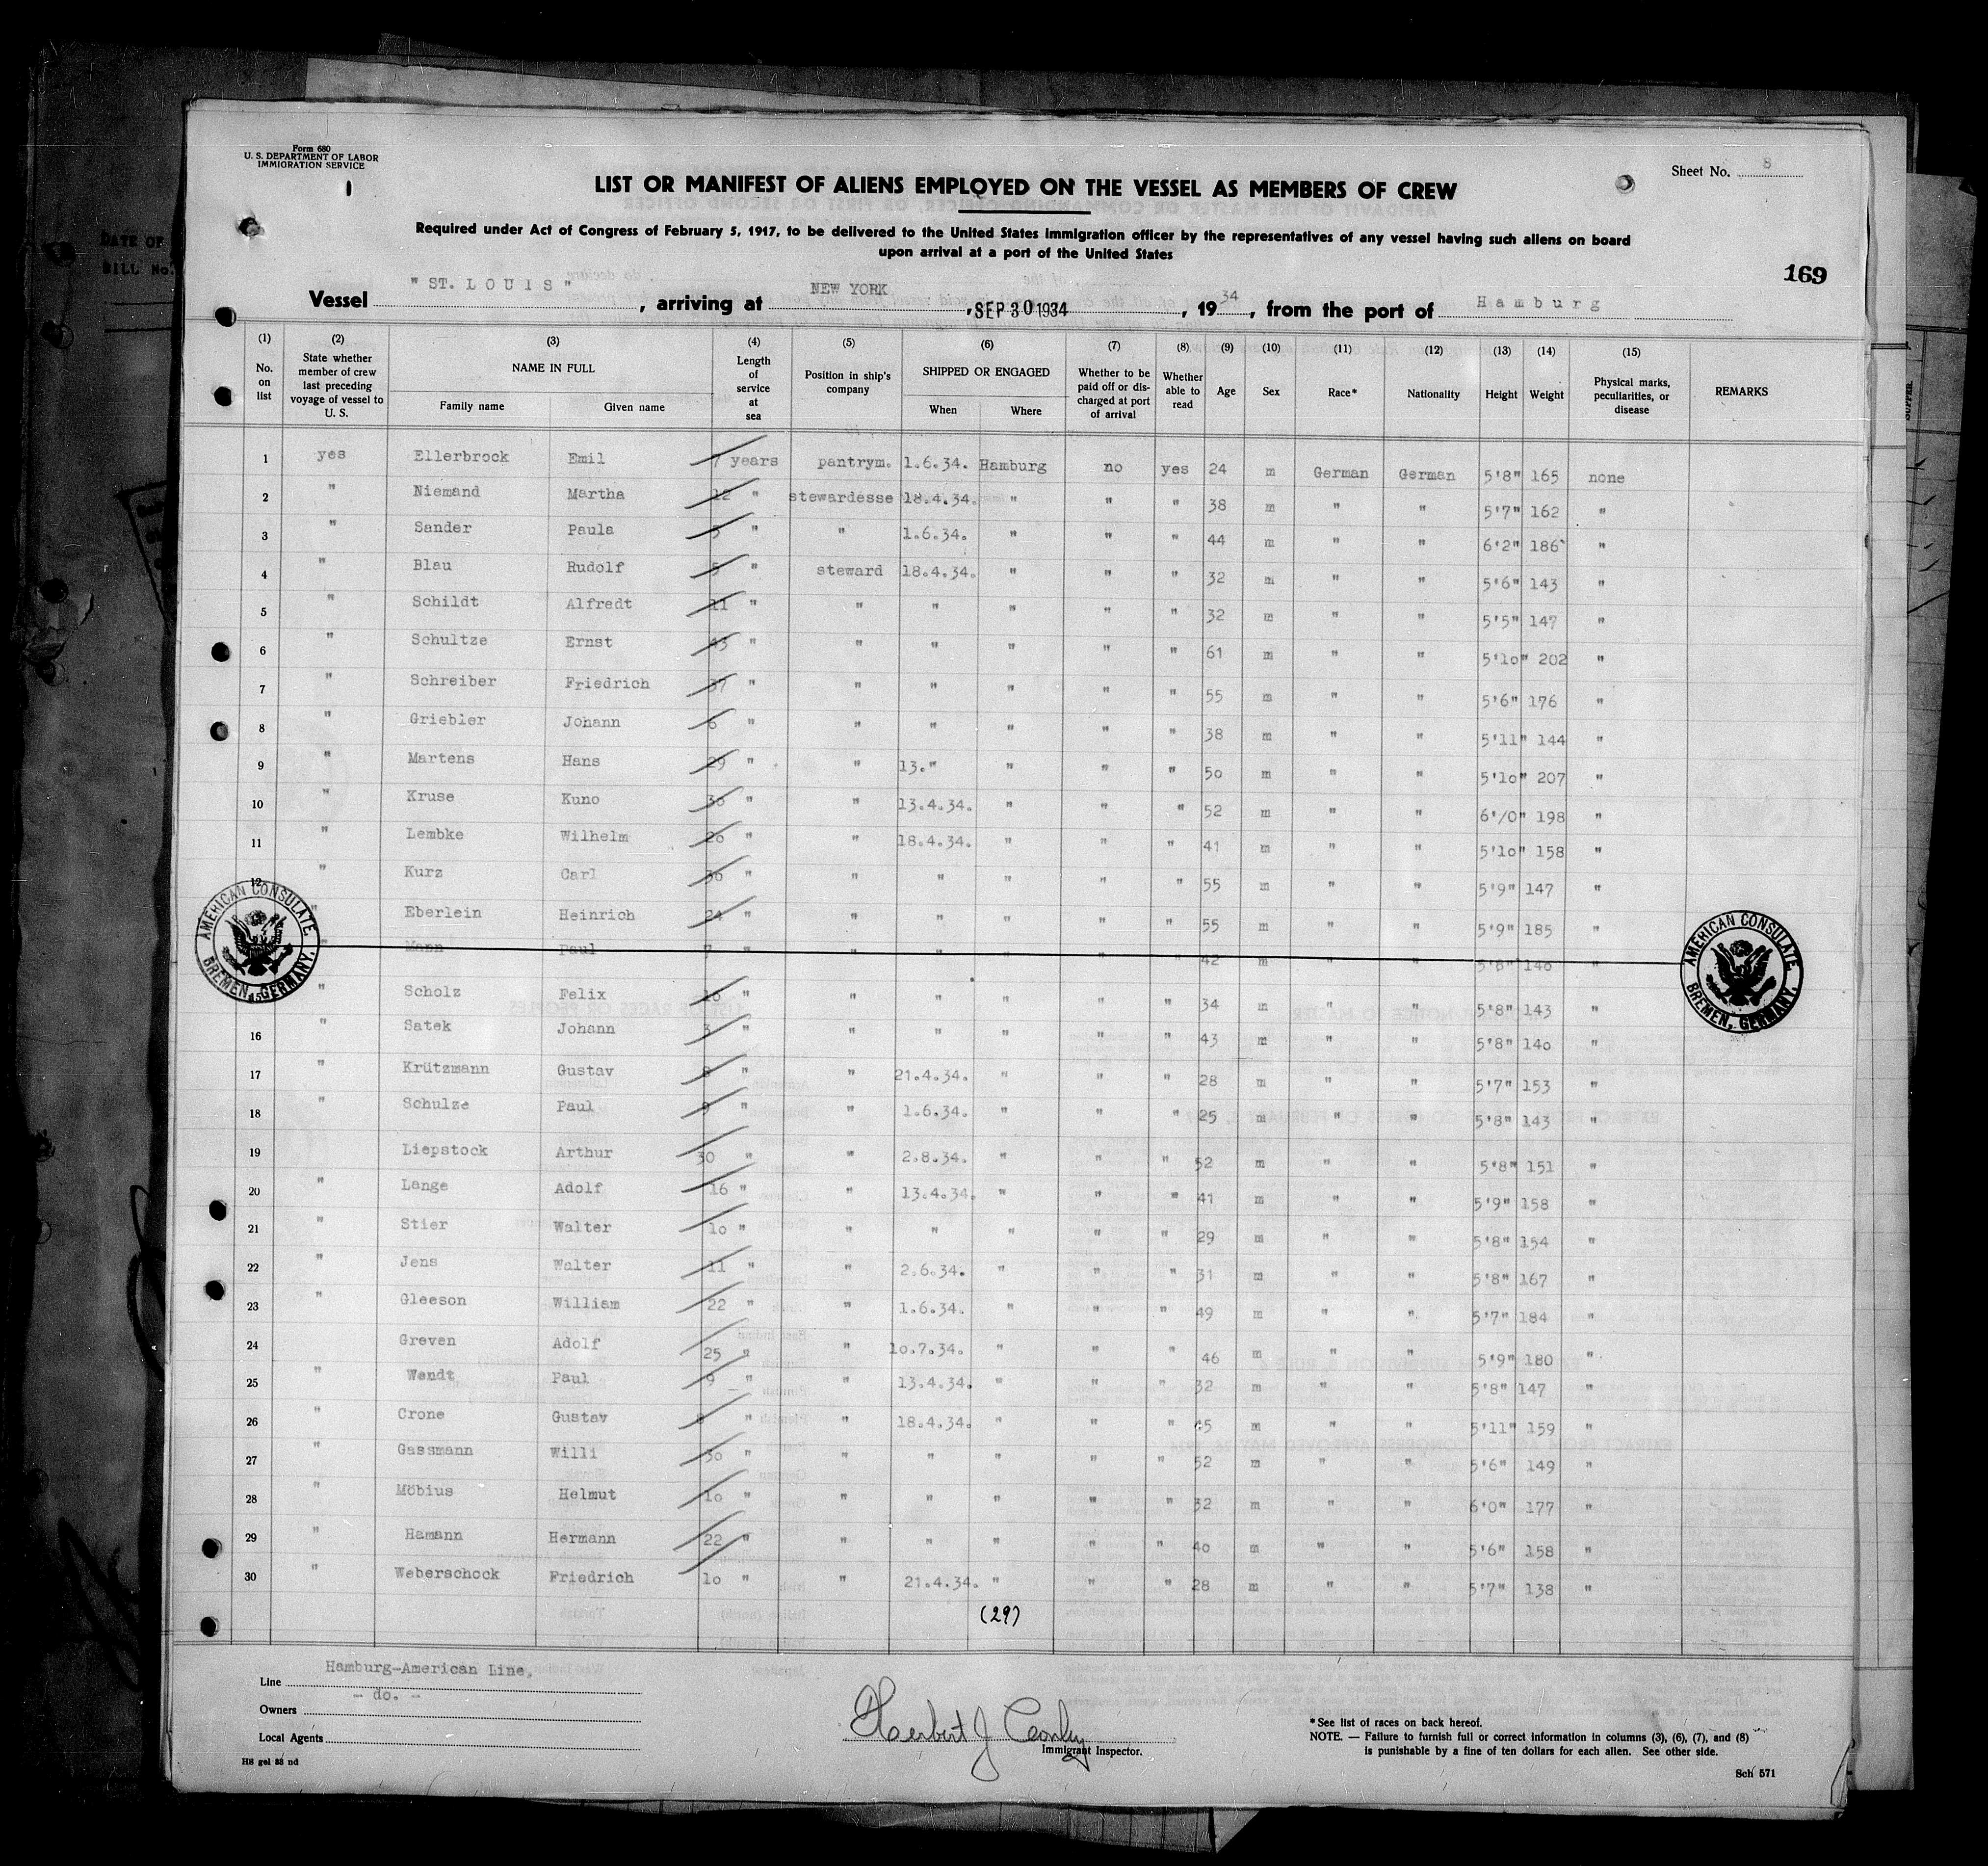 Form 680
U. S. DEPARTMENT OF LABOR
IMMIGRATION SERVICE
Sheet No. 8
LIST OR MANIFEST OF ALIENS EMPLOYED ON THE VESSEL AS MEMBERS OF CREW
Required under Act of Congress of February 5, 1917, to be delivered to the United States immigration officer by the representatives of any vessel having such aliens on board
upon arrival at a port of the United States
169
Vessel "ST. LOUIS", arriving at NEW YORK, SEP 30 1934, 1934, from the port of Hamburg
(1) (2) (3) (4) (5) (6) (7) (8) (9) (10) (11) (12) (13) (14) (15)
No. on list State whether member of crew last preceding voyage of vessel to U. S. NAME IN FULL Family name Given name Length of service at sea Position in ship's company SHIPPED OR ENGAGED When Where Whether to be paid off or discharged at port of arrival Whether able to read Age Sex Race* Nationality Height Weight Physical marks, peculiarities, or disease REMARKS
1 yes Ellerbrock Emil 7 years pantrym. 1.6.34. Hamburg no yes 24 m German German 5'8" 165 none
2 " Niemand Martha 12 " stewardesse 18.4.34. " " " 38 m " " 5'7" 162 "
3 " Sander Paula 3 " " 1.6.34. " " " 44 m " " 6'2" 186 "
4 " Blau Rudolf 5 " steward 18.4.34. " " " 32 m " " 5'6" 143 "
5 " Schildt Alfredt 11 " " " " " " 32 m " " 5'5" 147 "
6 " Schultze Ernst 43 " " " " " " 61 m " " 5'10" 202 "
7 " Schreiber Friedrich 37 " " " " " " 55 m " " 5'6" 176 "
8 " Griebler Johann 6 " " " " " " 38 m " " 5'11" 144 "
9 " Martens Hans 29 " " 13." " " " 50 m " " 5'10" 207 "
10 " Kruse Kuno 36 " " 13.4.34. " " " 52 m " " 6'/0" 198 "
11 " Lembke Wilhelm 20 " " 18.4.34. " " " 41 m " " 5'10" 158 "
12 " Kurz Carl 36 " " " " " " 55 m " " 5'9" 147 "
" Eberlein Heinrich 24 " " " " " " 55 m " " 5'9" 185 "
" Mann Paul 7 " " " " " " 42 m " " 5'8" 140 "
15 " Scholz Felix 16 " " " " " " 34 m " " 5'8" 143 "
16 " Satek Johann 3 " " " " " " 43 m " " 5'8" 140 "
17 " Krützmann Gustav 8 " " 21.4.34. " " " 28 m " " 5'7" 153 "
18 " Schulze Paul 9 " " 1.6.34. " " " 25 m " " 5'8" 143 "
19 Liepstock Arthur 30 " " 2.8.34. " " " 52 m " " 5'8" 151 "
20 " Lange Adolf 16 " " 13.4.34. " " " 41 m " " 5'9" 158 "
21 " Stier Walter 10 " " " " " " 29 m " " 5'8" 154 "
22 " Jens Walter 11 " " 2.6.34. " " " 31 m " " 5'8" 167 "
23 " Gleeson William 22 " " 1.6.34. " " " 49 m " " 5'7" 184 "
24 Greven Adolf 25 " " 10.7.34. " " " 46 m " " 5'9" 180 "
25 " Wendt Paul 9 " " 13.4.34. " " " 32 m " " 5'8" 147 "
26 " Crone Gustav " " 18.4.34. " " " 45 m " " 5'11" 159 "
27 " Gassmann Willi 30 " " " " " " 52 m " " 5'6" 149 "
28 " Möbius Helmut 10 " " " " " " 32 m " " 6'0" 177 "
29 " Hamann Hermann 22 " " " " " " 40 m " " 5'6" 158 "
30 " Weberschock Friedrich 10 " " 21.4.34. " " " 28 m " " 5'7" 138 "
(29)
AMERICAN CONSULATE
BREMEN, GERMANY.
AMERICAN CONSULATE
BREMEN, GERMANY.
Line Hamburg-American Line,
Owners - do. -
Local Agents
HS gel 33 nd
Herbert J Conly
Immigrant Inspector.
*See list of races on back hereof.
NOTE. — Failure to furnish full or correct information in columns (3), (6), (7), and (8)
is punishable by a fine of ten dollars for each alien. See other side.
Sch 571
DATE OF
BILL No.